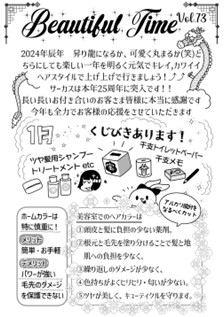 Beautiful Time Vol.73
2024年辰年 昇り龍になるか、可愛く丸まるか(笑)ど
ちらにしても楽しい一年を明るく元気でキレイ,カワイイ
ヘアスタイルで上げ上げで行きましょう!
サーカスは本年25周年に突入です!!
長い長いお付き合いのお客さま皆様に本当に感謝です
今年も全力でお客様の応援をさせていただきます
1月
くじびきあります!!
干支トイレットペーパー
干支メモ
ツヤ髪用シャンプー
トリートメントetc
アルカリ除去は
なるべくカット
ホームカラーは
特に慎重に!
メリット
簡単・お手軽
デメリット
パワーが強い
毛先のダメージ
を保護できない
美容室でのヘアカラーは
①頭皮と髪に負担の少ない薬剤。
②根元と毛先を塗り分けることで髪と地
肌への負担を少なく、
③繰り返しのダメージが少なく、
④色持ちがよくヒリヒリ・匂いが少ない。
⑤ツヤが美しく、キューティクルを守ります。